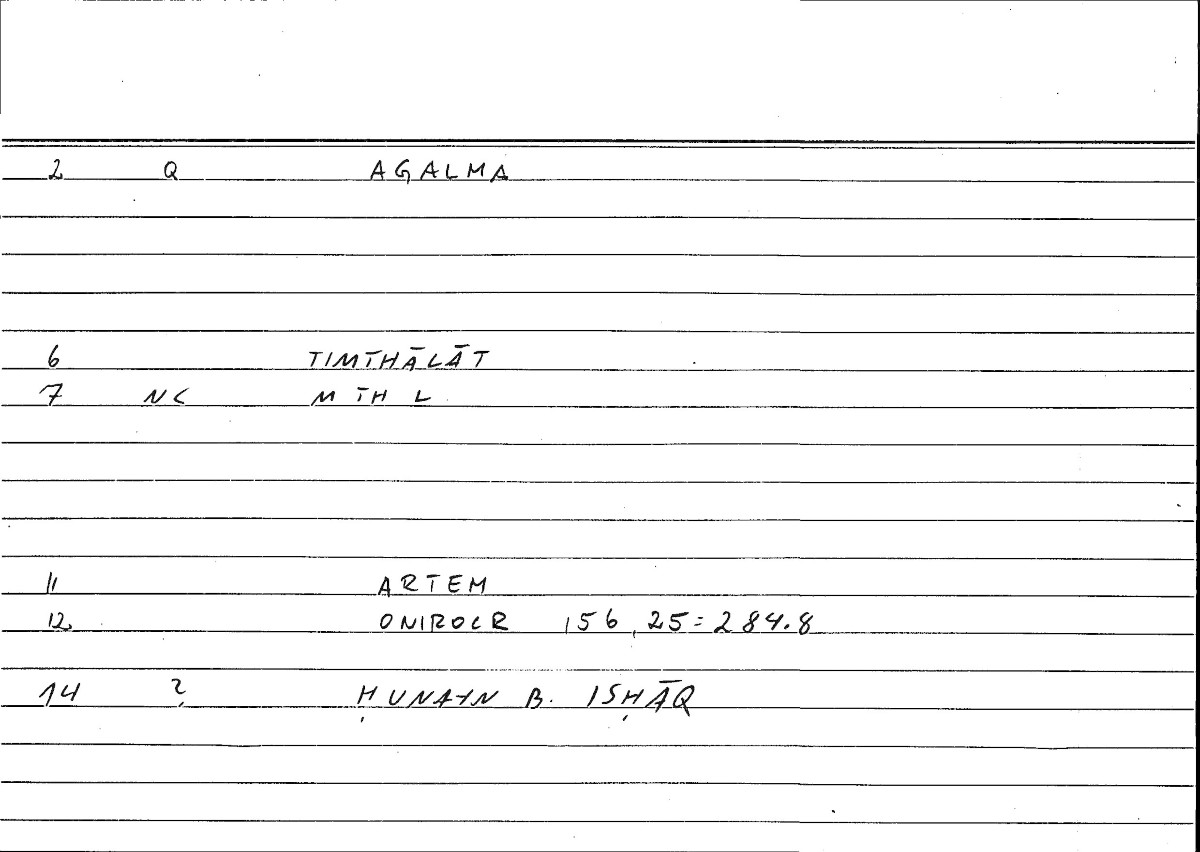 2 Q AGALMA
6 TIMTHĀLĀT
7 NC MTHL
11 ARTEM
12. ONIROCR 156,25=284.8
14 ? ḤUNAYN B. ISḤĀQ